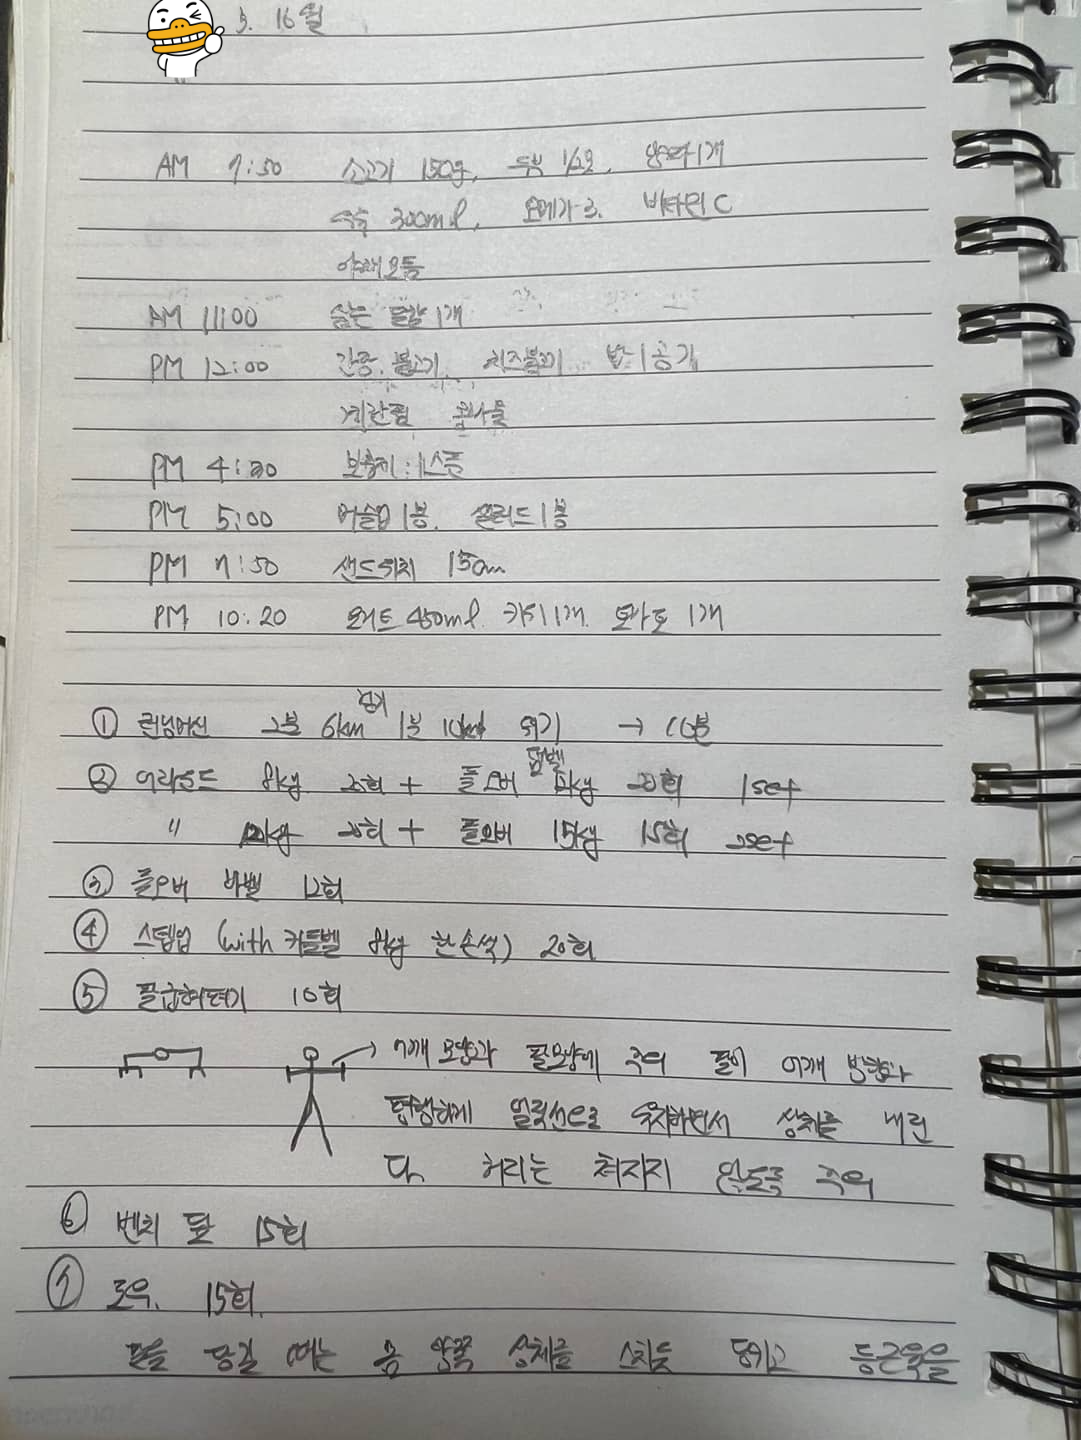 3. 16월
AM 7:50 소고기 150g, 두부 1/2모, 1개
300ml, 오메가3. 비타민C
야채모듬
AM 11:00 삶은 달걀 1개
PM 12:00 간장.불고기. 치즈불고기 밥1공기
계란찜 콩나물
PM 4:30 보충제:1스푼
PM 5:00 머슬업1봉. 샐러드1봉
PM 7:50 샌드위치 15cm
PM 10:20 요거트 450ml. 키위1개. 토마토 1개
걷기
① 런닝머신 2분 6km 1분 10km 뛰기 → 10분
덤벨
② 어라운드 8kg 20회 + 풀오버 20회 1set
" 20회 + 풀오버 15kg 15회 2set
③ 풀오버 바벨 12회
④ 스텝업 (with 커틀벨 8kg 한손씩) 20회
⑤ 팔굽혀펴기 10회
→ 어깨 모양과 팔모양에 주의 팔이 어깨 방향과
평행하게 일직선으로 유지하면서 상체를 내린
다. 허리는 쳐지지 않도록 주의
⑥ 벤치 딮 15회
⑦ 로우. 15회.
당길 때는 몸 양쪽 상체를 스치듯 당기고 등근육을